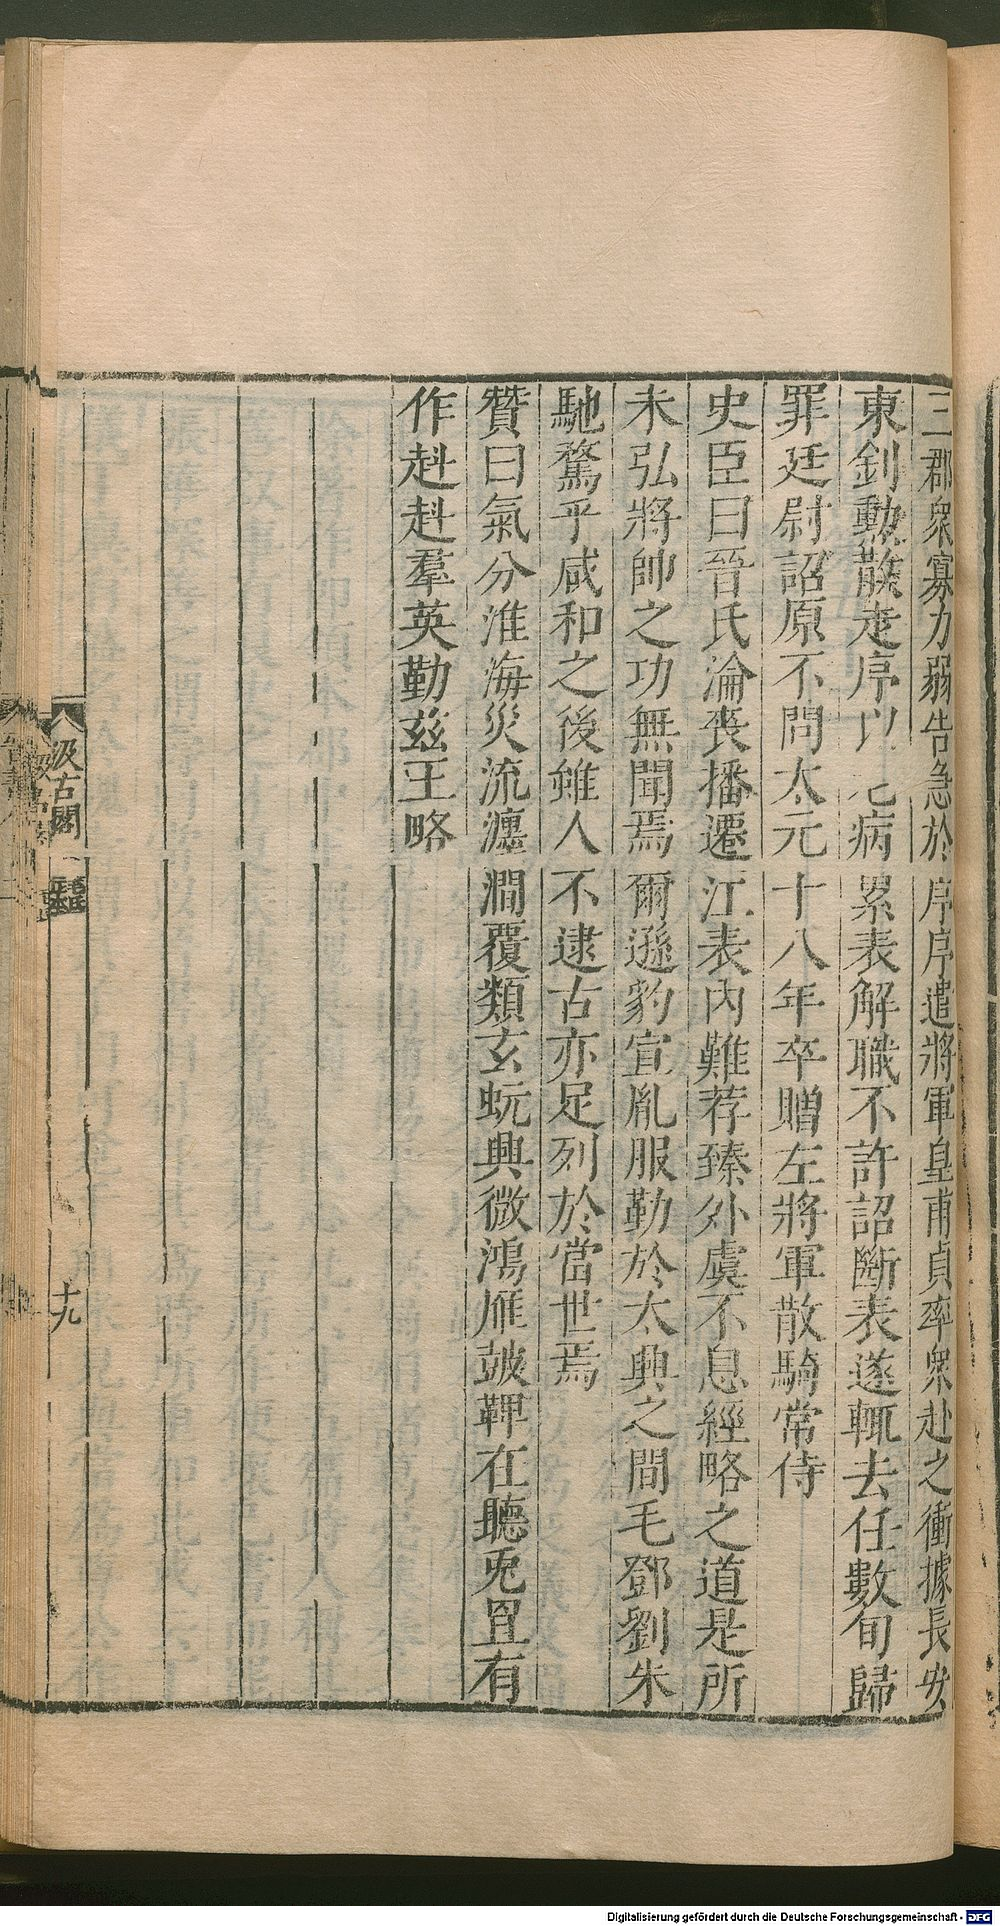 三郡衆寡力弱告急於序序遣將軍皇甫貞率衆赴之衝據長安
東釗勳散走序以老病累表解職不許詔斷表遂輒去任數旬歸
罪廷尉詔原不問太元十八年卒贈左將軍散騎常侍
史臣曰晉氏淪喪播遷江表內難荐臻外虞不息經略之道是所
未弘將帥之功無聞焉爾遜豹宣胤服勤於太興之間毛鄧劉朱
馳騖乎咸和之後雖人不逮古亦足列於當世焉
贊曰氣分淮海災流瀍澗覆類玄蚖興微鴻雁鼓鞞在聽兎罝有
作赳赳羣英勤兹王略
汲古閣
十九
Digitalisierung gefördert durch die Deutsche Forschungsgemeinschaft - DFG